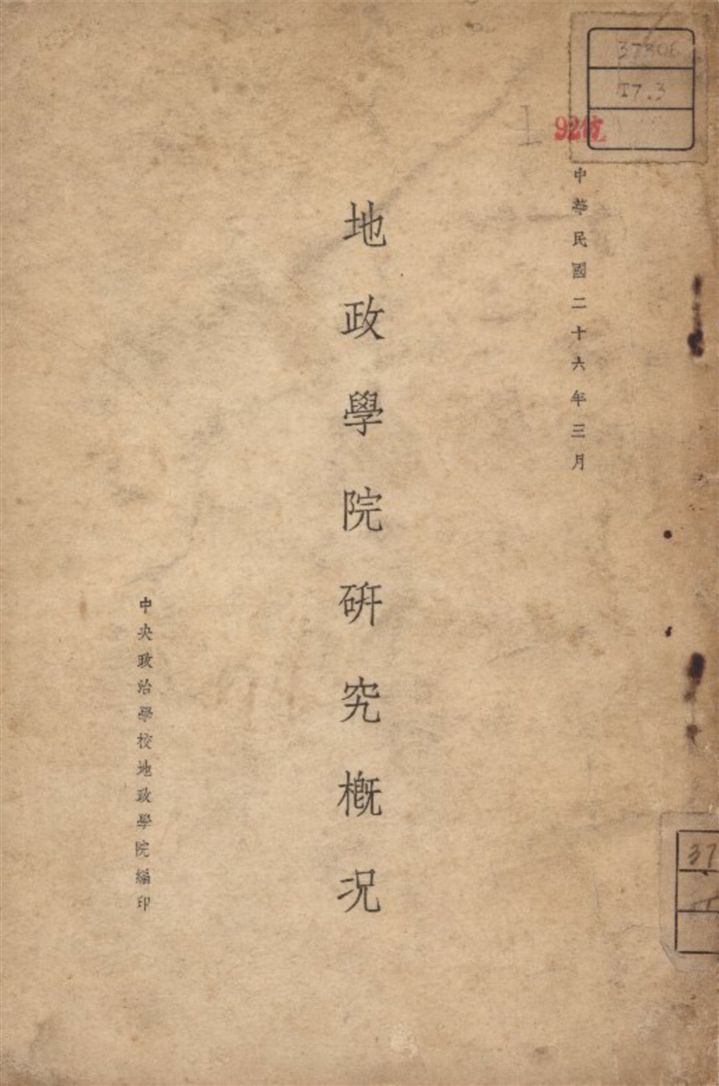 中華民國二十六年三月
地政學院研究概況
中央政治學校地政學院編印
37306
17.3
37